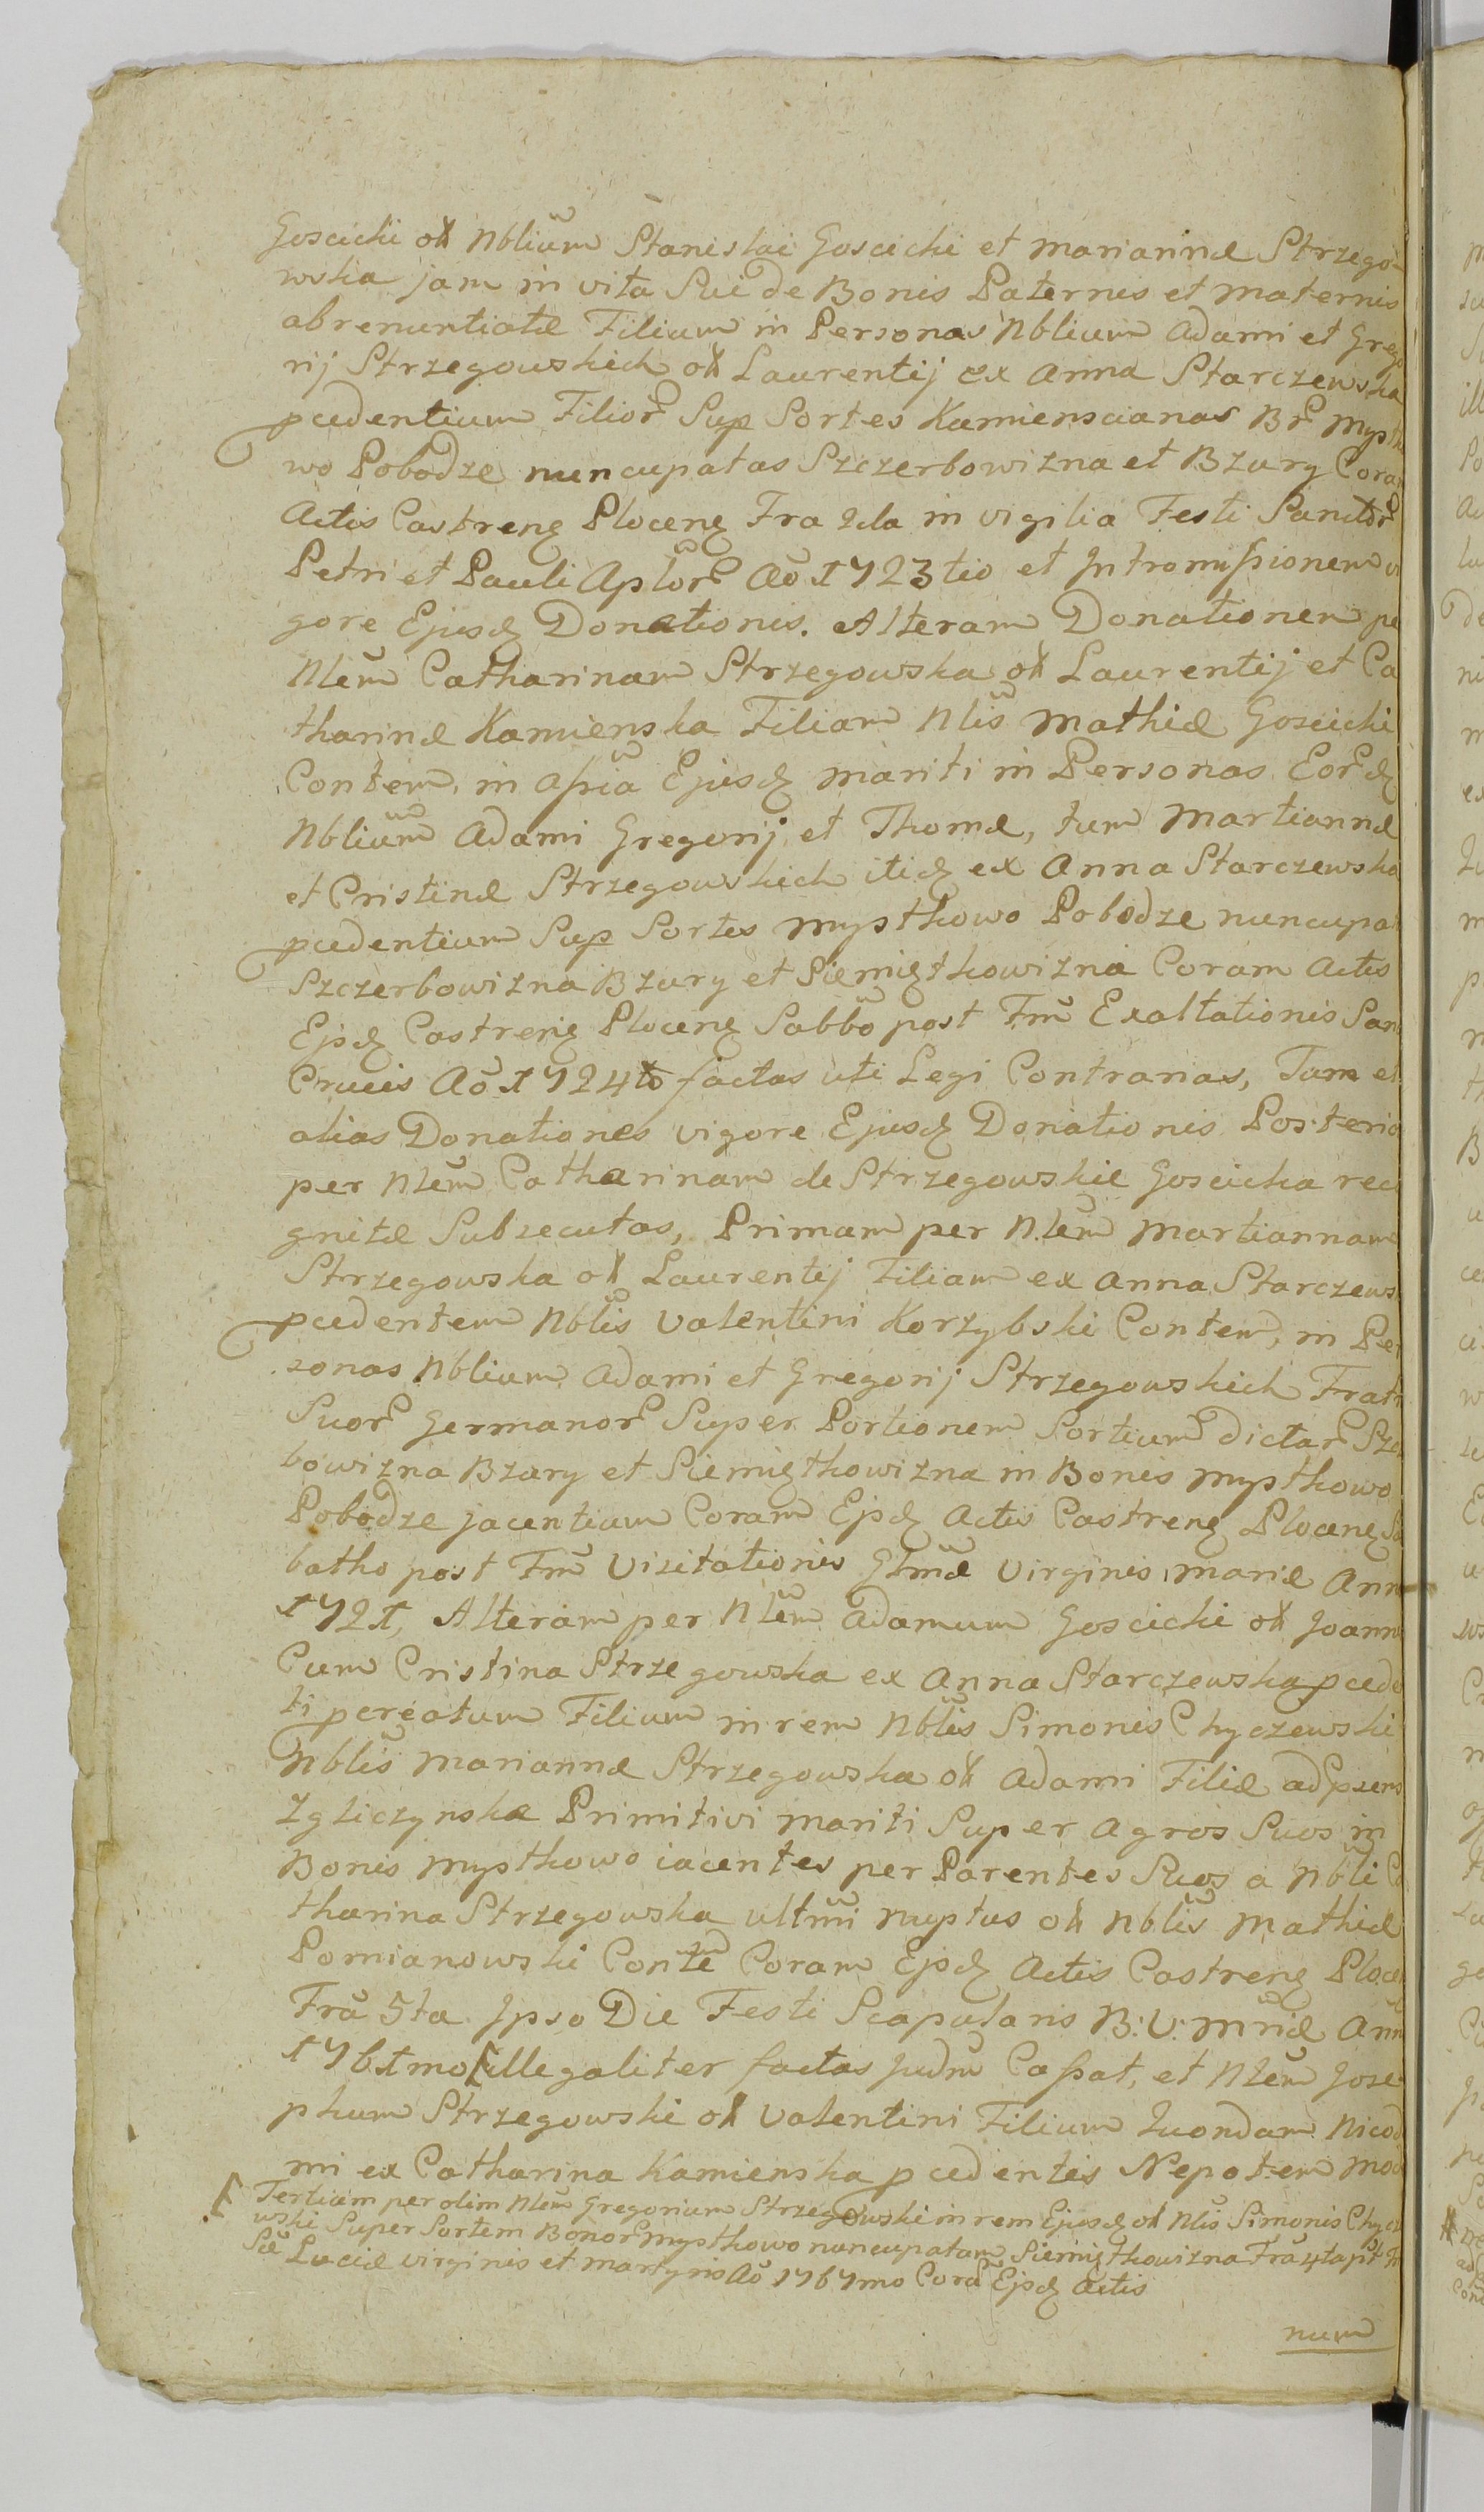 Goscicki olī Nbliūm Stanislai Goscicki et Mariannæ Strzego-
wska jam in vita Sui de Bonis Paternis et Maternis
abrenuntiatæ Filium in Personas Nblium Adami et Grego
rij Strzegowskich olī Laurentij ex Anna Starczewska
pcedentium Filior Sup Sortes Kamienscianas Br Mystk
wo Pobodze nuncupatas Szczerbowizna et Bzury Cora
Actis Castreng Ploceng Fra 2da in vigilia Festi Sanctor
Petri et Pauli Aplōr Aō 1723tio et Intromißionem vi
gore Ejusdq Donationis. Alteram Donationem pe
Nlēm Catharinam Strzegowska olī Laurentij et Ca
tharinæ Kamienska Filiam Nlīs Mathiæ Goscicki
Contem, in aßīa Ejusdq Mariti in Personas Eordq
Nbliūm Adami Gregorij et Thomæ, tum Martiannæ
et Cristinæ Strzegowskich itidq ex Anna Starczewska
pcedentium Sup Sortes Mystkowo Pobodze nuncupat
Szczerbowizna Bzury et Siemiętkowizna Coram Actis
Ejdq Castreng Ploceng Sabbō post Fm̄ Exaltationis San
Crucis Aō 1724to factas uti Legi Contrarias, Tum et
alias Donationes vigore Ejusdq Donationis Posterio
per Nlēm Catharinam de Strzegowskie Goscicka reco
gnitæ Subsecutas, Primam per Nlēm Martiannam
Strzegowska olī Laurentij Filiam ex Anna Starczews
pcedentem Nblīs Valentini Korzybski Contem, in Per
sonas Nblium Adami et Gregorij Strzegowskich Fratr
Suor Germanor Super Portionem Sortium dictar Szc
bowizna Bzury et Siemiętkowizna in Bonis Mystkowo
Pobodze jacentium Coram Ejdq Actis Castreng Ploceng Sa
batho post Fm̄ Visitationis Glm̄æ Virginis Mariæ Ann
1721, Alteram per Nlēm Adamum Goscicki olī Joann
Cum Cristina Strzegowska ex Anna Starczewska pcede
ti pcreatum Filium in rem Nblīs Simonis Chyczewski
Nblīs Mariannæ Strzegowska olī Adami Filiæ ad psens
Zgliczynska Primitivi Mariti Super Agros Suos in
Bonis Mystkowo iacentes per Parentes Suos a Nblī Ca
tharina Strzegowska ultm̄i nuptus olī Nblīs Mathiæ
Pomianowski Conte Coram Ejdq Actis Castreng Ploce
Frā 5ta Ipso Die Festi Scapularis B: V: Mriæ Ann
1761mo [illegaliter factas Judm̄ Caßat, et Nlēm Jose
phum Strzegowski olī Valentini Filium Quondam Nicod
mi ex Catharina Kamienska pcedentis Nepotem Mod
[ Tertiam per olim Nlēm Gregorium Strzegowski in rem Ejusdq olī Nlīs Simonis Chycz
wski Super Sortem Bonor Mystkowo nuncupatam Siemiętkowizna Frā 4ta pt F
Sæ Luciæ virginis et martyris Aō 1767mo Corā Ejdq Actis
num